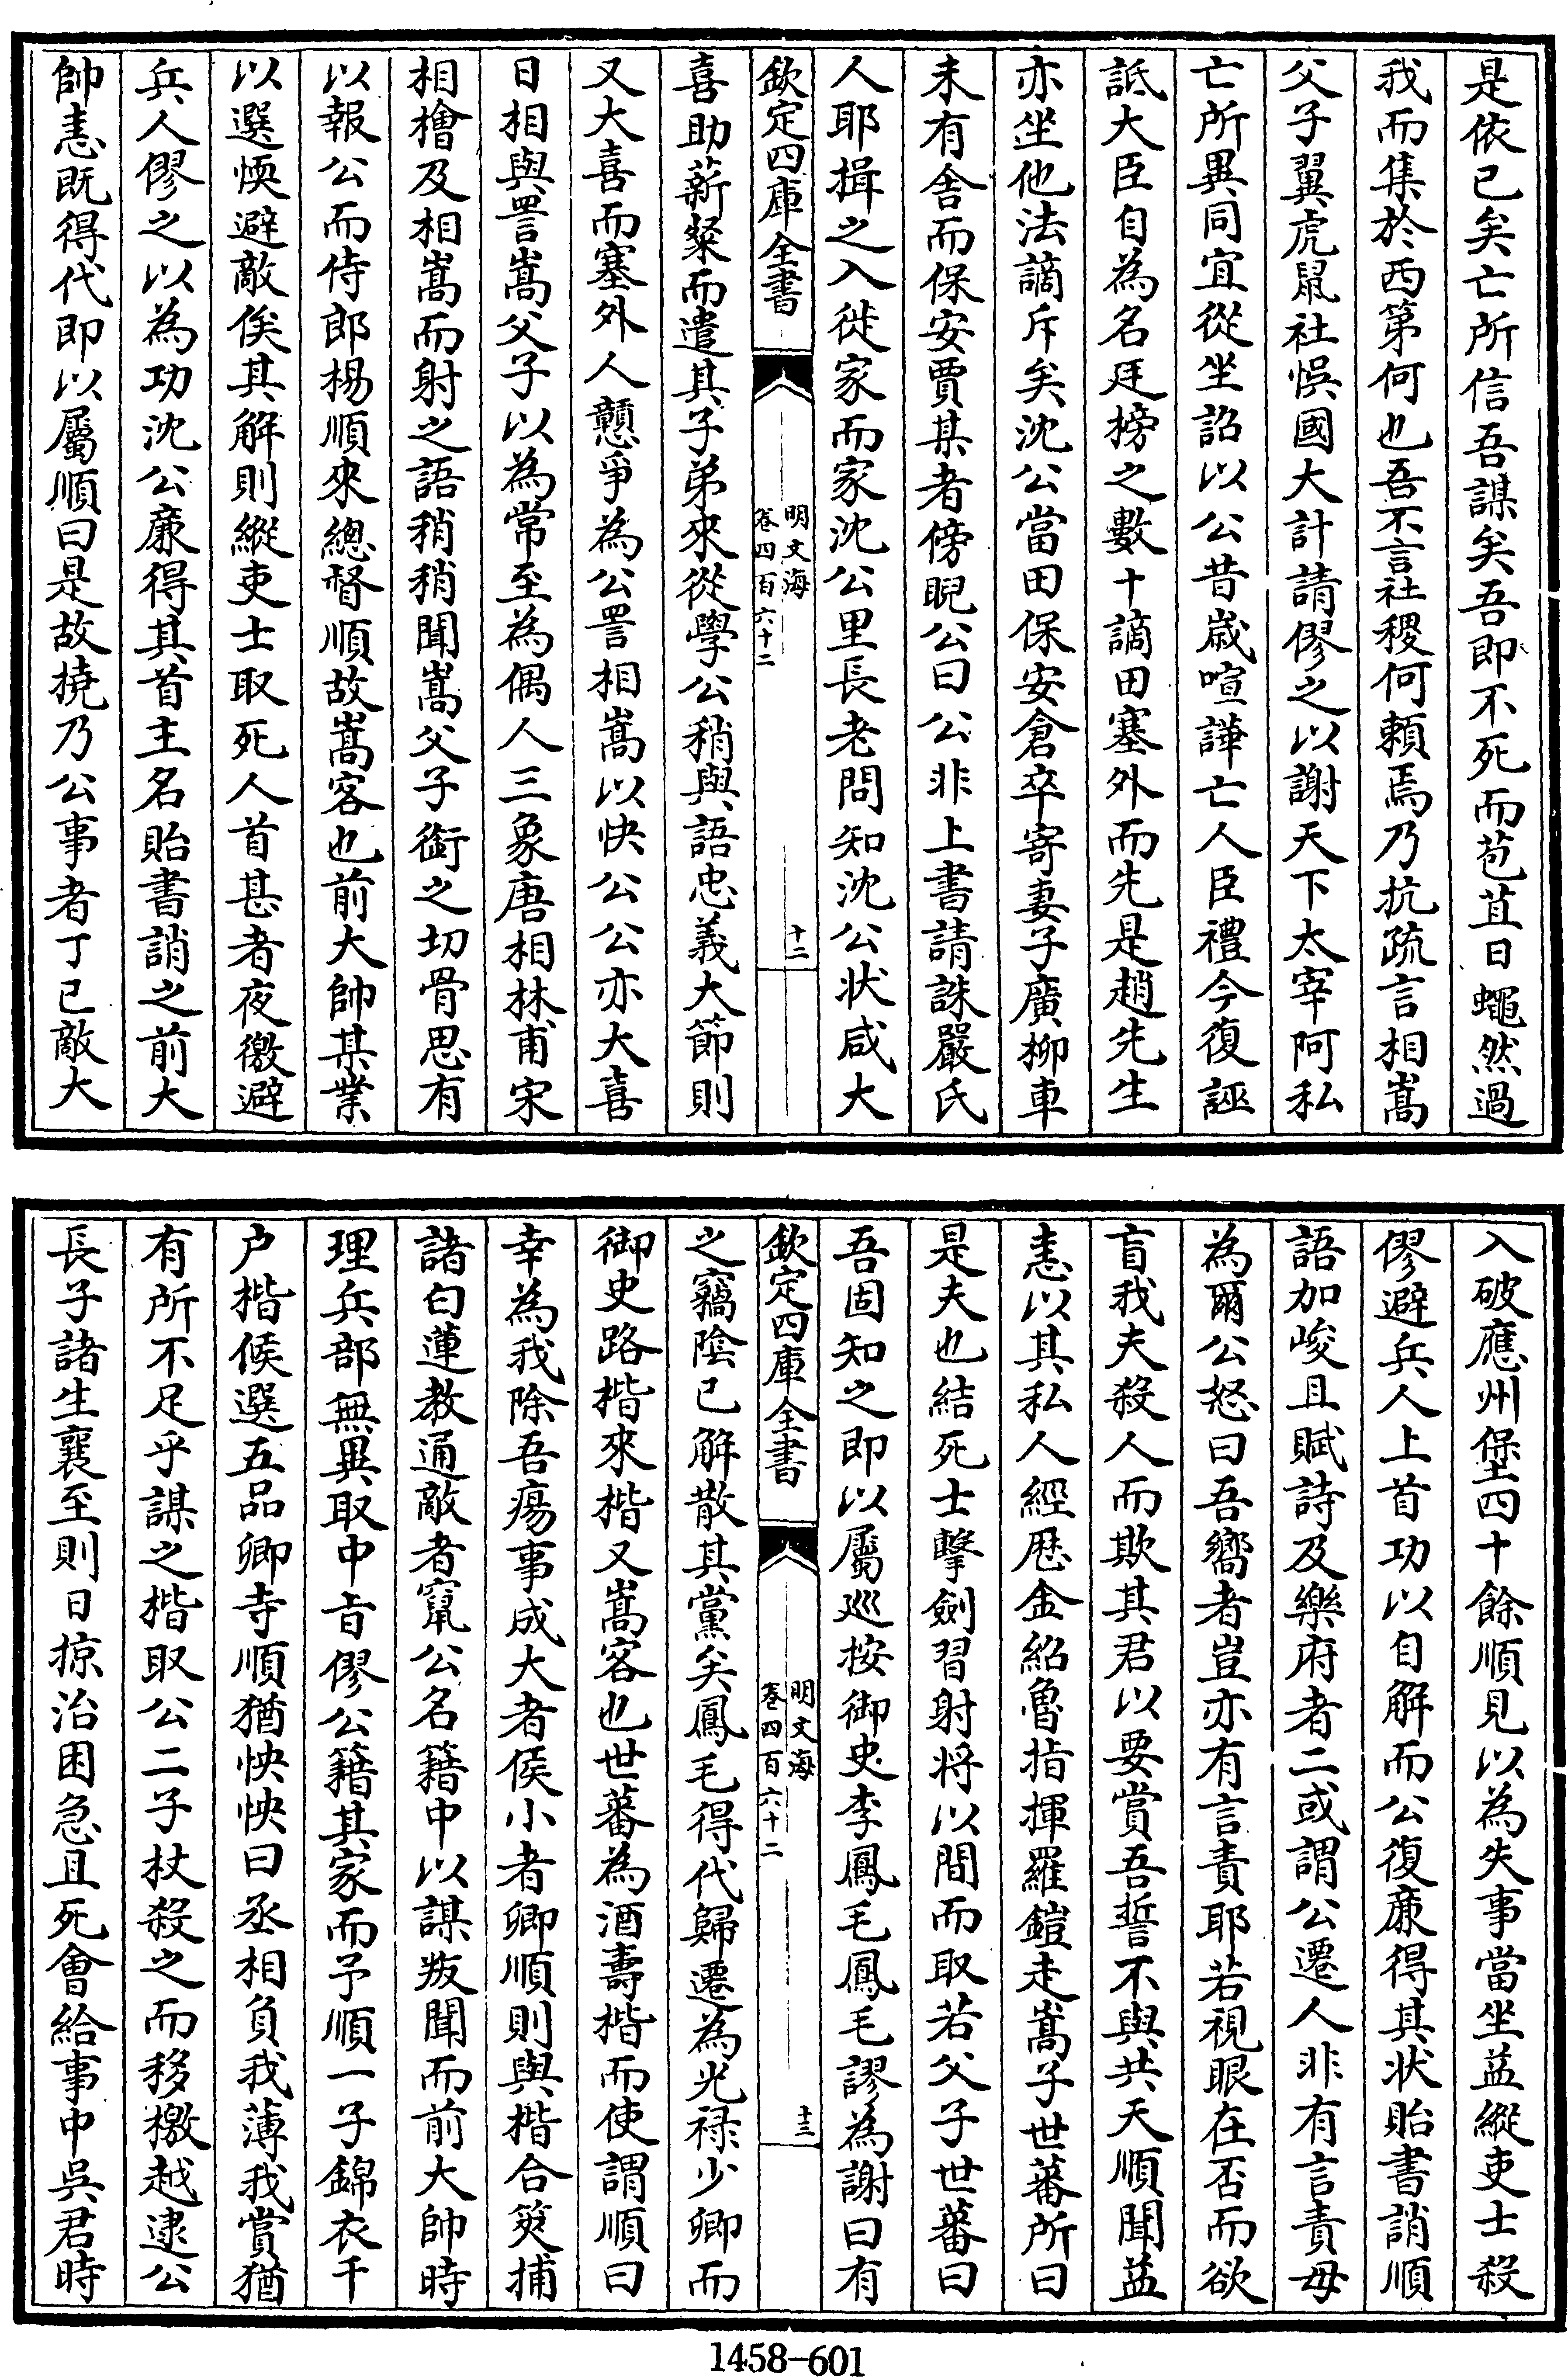 是依已矣亡所信吾謀矣吾即不死而苞苴日蠅然過
我而集於西第何也吾不言社稷何賴焉乃抗疏言相嵩
父子翼虎鼠社悞國大計請僇之以謝天下太宰阿私
亡所異同宜從坐詔以公昔歲喧譁亡人臣禮今復誣
詆大臣自為名廷榜之數十謫田塞外而先是趙先生
亦坐他法謫斥矣沈公當田保安倉卒寄妻子廣柳車
未有舍而保安賈某者傍睨公曰公非上書請誅嚴氏
人耶揖之入徙家而家沈公里長老問知沈公状咸大
欽定四庫全書
明文海
卷四百六十二
十二
喜助薪粲而遣其子弟來從學公稍與語忠義大節則
又大喜而塞外人戇爭為公詈相嵩以快公公亦大喜
日相與詈嵩父子以為常至為偶人三象唐相林甫宋
相檜及相嵩而射之語稍稍聞嵩父子銜之切骨思有
以報公而侍郎楊順來總督順故嵩客也前大帥某業
以選愞避敵俟其解則縱吏士取死人首甚者夜徼避
兵人僇之以為功沈公廉得其首主名貽書誚之前大
帥恚既得代即以屬順曰是故撓乃公事者丁巳敵大
入破應州堡四十餘順見以為失事當坐益縱吏士殺
僇避兵人上首功以自解而公復廉得其状貽書誚順
語加峻且賦詩及樂府者二或謂公遷人非有言責毋
為爾公怒曰吾嚮者豈亦有言責耶若視眼在否而欲
盲我夫殺人而欺其君以要賞吾誓不與共天順聞益
恚以其私人經歴金紹魯指揮羅鎧走嵩子世蕃所曰
是夫也結死士擊劍習射将以間而取若父子世蕃曰
吾固知之即以屬巡按御史李鳳毛鳳毛謬為謝曰有
欽定四庫全書
明文海
卷四百六十二
十三
之竊陰已解散其黨矣鳳毛得代歸遷為光禄少卿而
御史路楷來楷又嵩客也世蕃為酒壽楷而使謂順曰
幸為我除吾瘍事成大者侯小者卿順則與楷合筴捕
諸白蓮教通敵者竄公名籍中以謀叛聞而前大帥時
理兵部無異取中旨僇公籍其家而予順一子錦衣千
户楷候選五品卿寺順猶怏怏曰丞相負我薄我賞猶
有所不足乎謀之楷取公二子杖殺之而移檄越逮公
長子諸生襄至則日掠治困急且死會給事中吳君時
1458-601